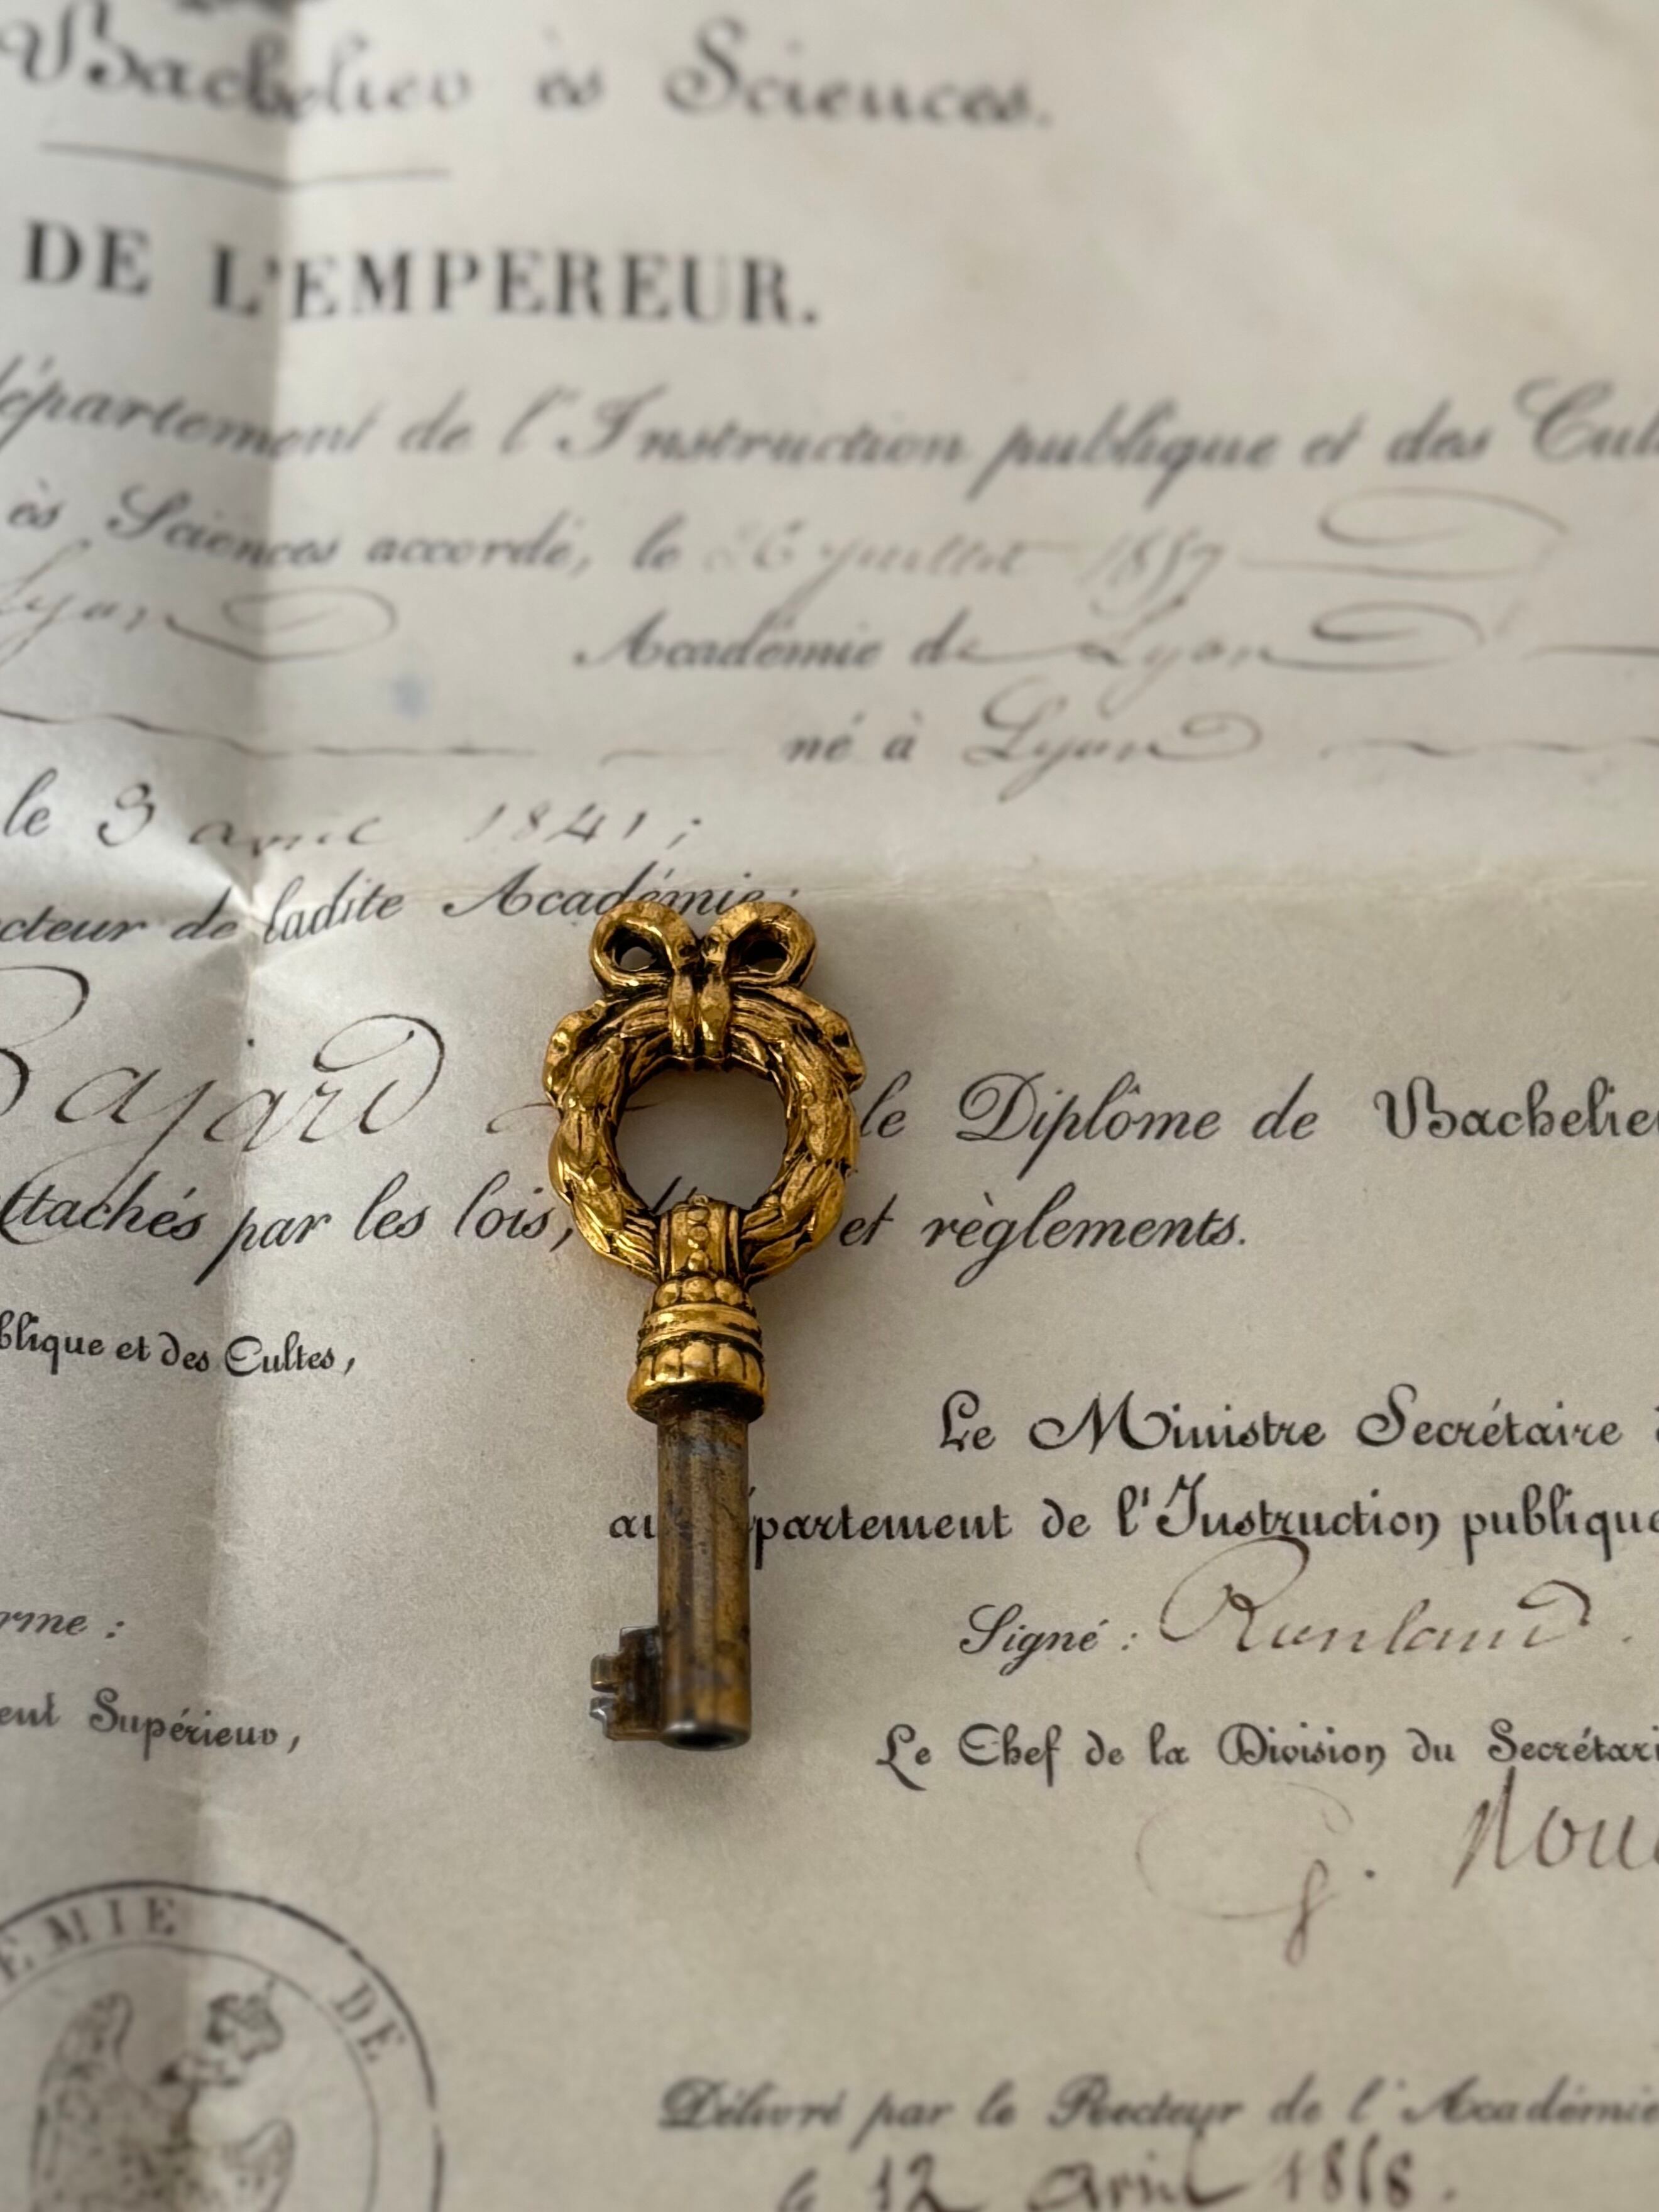 Bachelier ès Sciences.
DE L'EMPEREUR.
département de l'Instruction publique et des Cul
ès Sciences accordé, le 26 juillet 1857
Lyon Académie de Lyon
né à Lyon
le 3 avril 1841;
cteur de ladite Académie;
Bajard le Diplôme de Bachelier
attachés par les lois, et règlements.
blique et des Cultes,
Le Ministre Secrétaire d
au département de l'Instruction publique
rme :
Signé : Rouland.
ent Supérieur,
Le Chef de la Division du Secrétari
EMIE DE
Délivré par le Recteur de l'Académie
le 12 avril 1858.